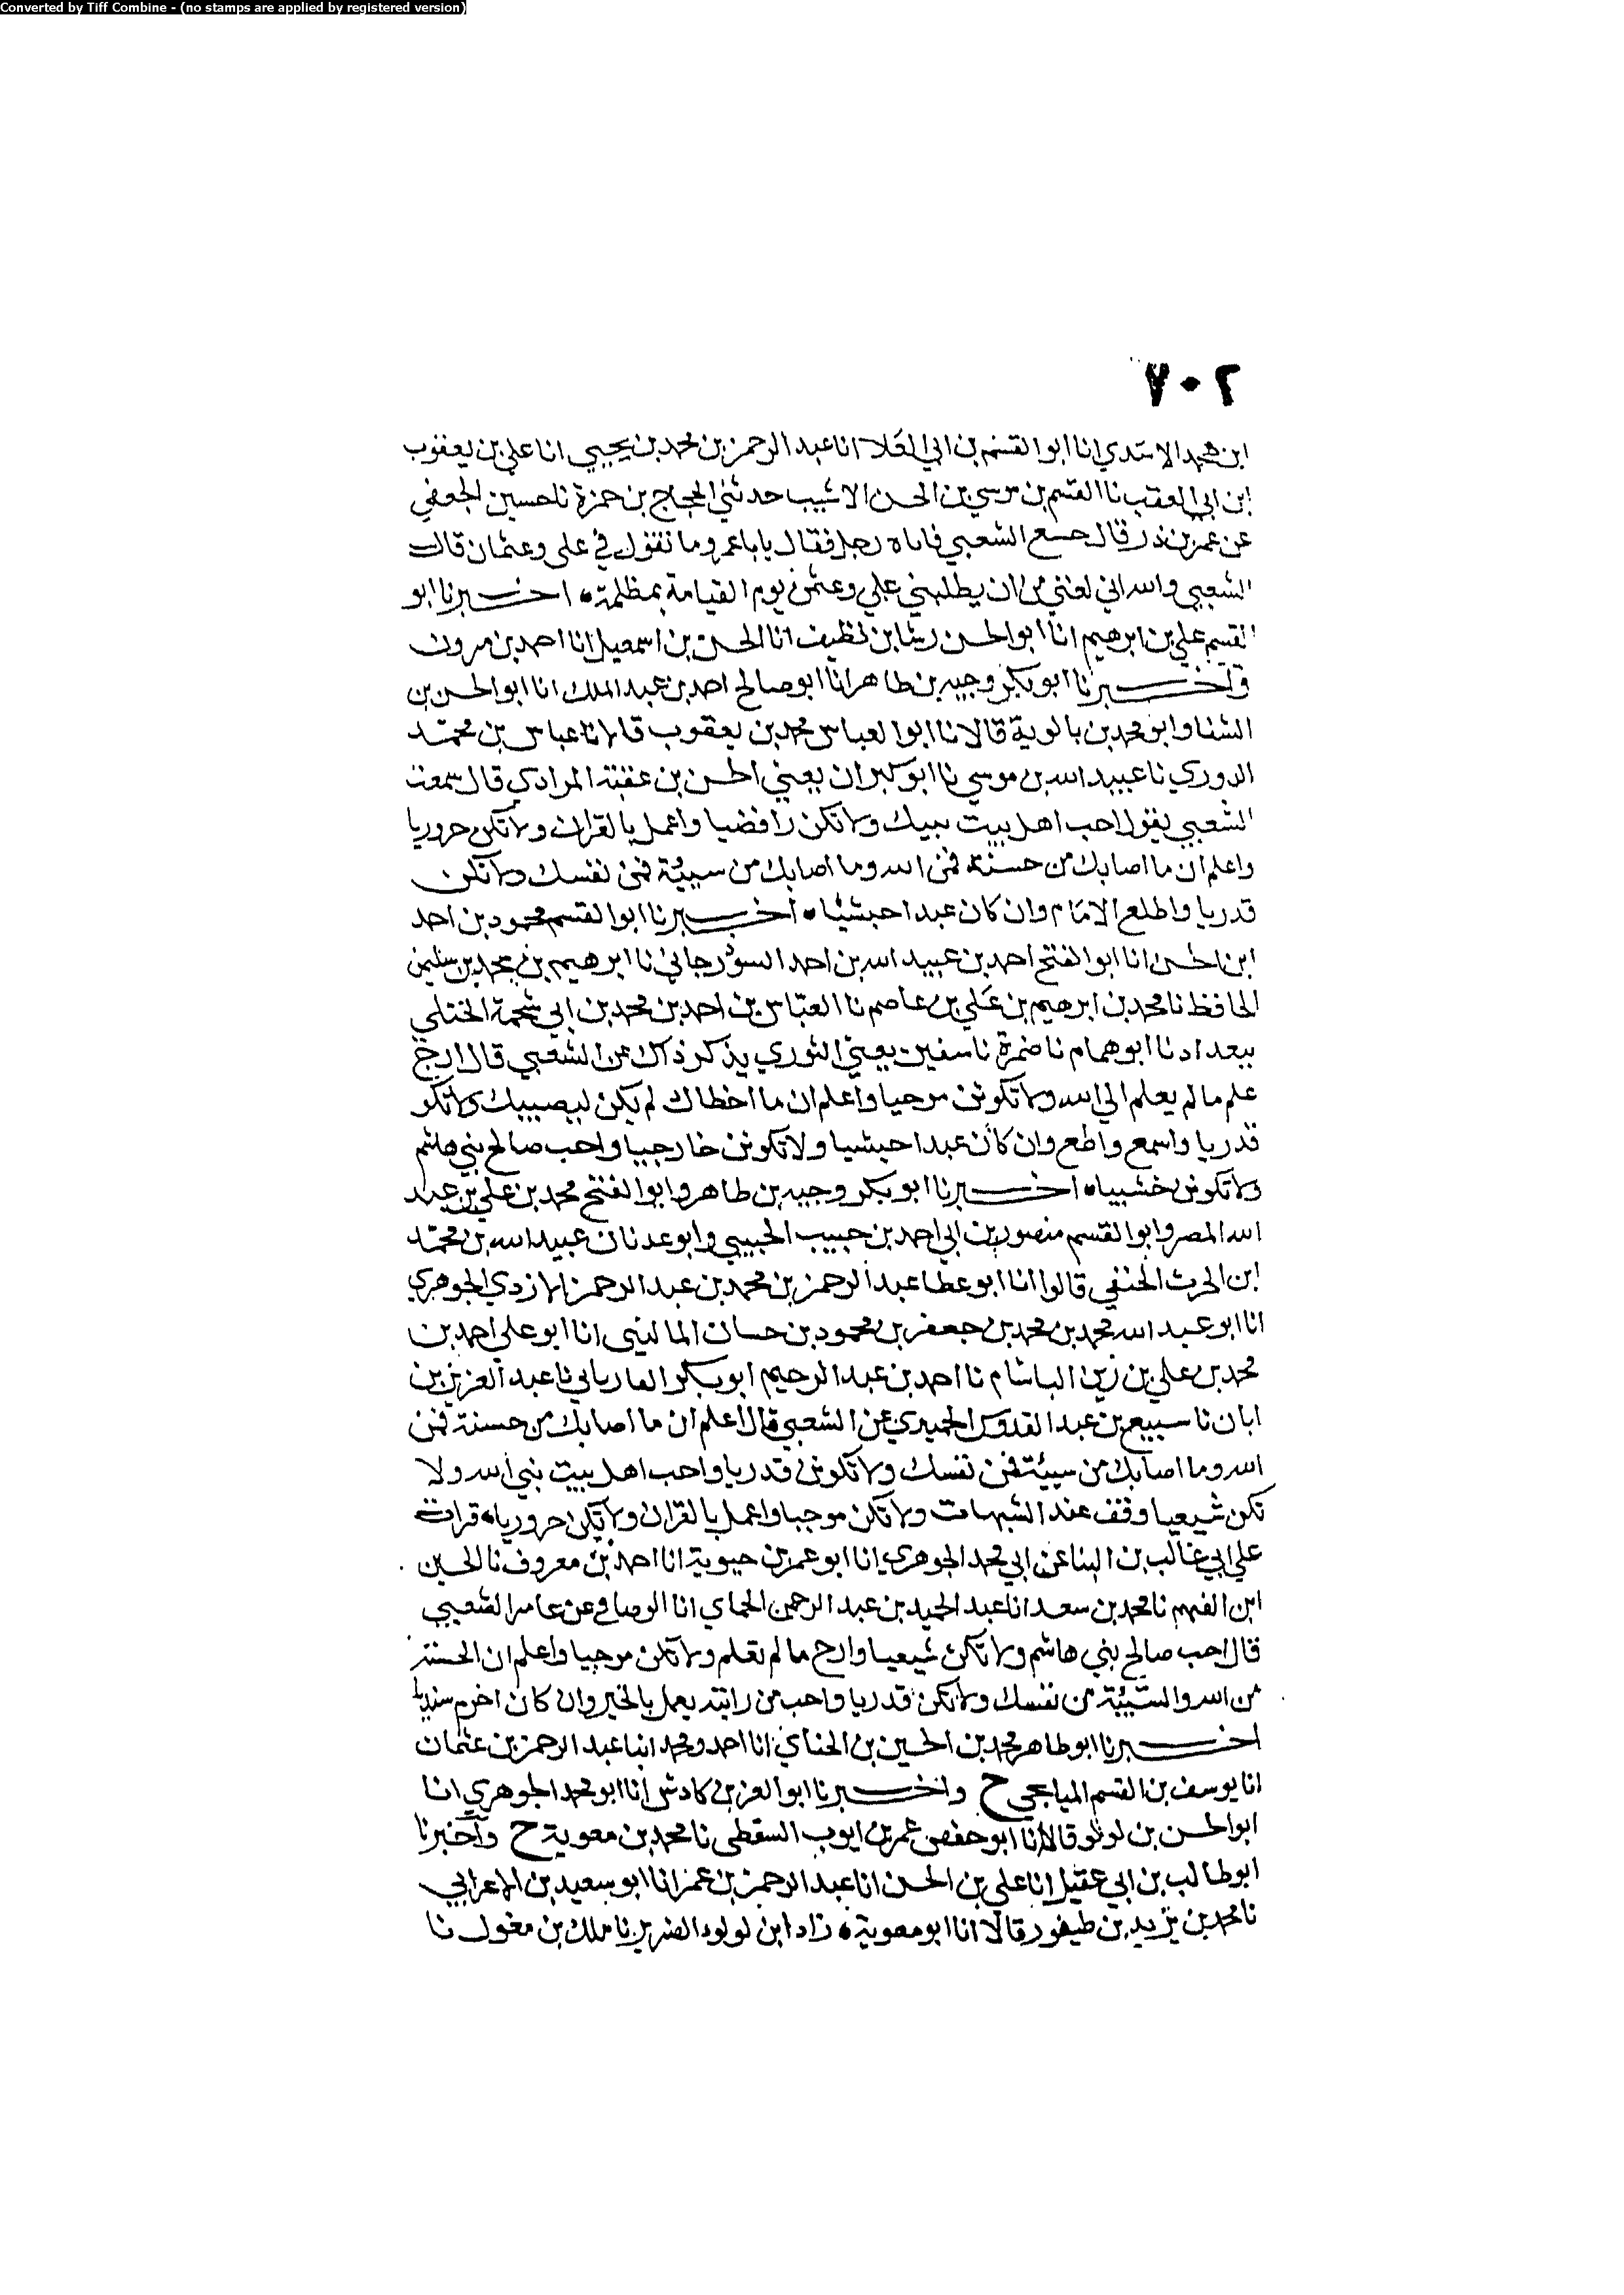 Converted by Tiff Combine - (no stamps are applied by registered version)
٧٠٢
ابن الاسدي انا ابو القسم بن ابي العلا انا عبد الرحمن بن محمد بن يحيي انا علي بن يعقوب
ابن ابي العقب نا القسم بن موسي بن الحسن الاشيب حدثني الحجاج بن حمزة نا حسين الجعفي
عن عمر بن ذر قال الشعبي فاتاه رجل فقال يا باعمرو ما تقول في علي وعثمان قال
الشعبي والله اني لغني من ان يطلبني علي وعثمن يوم القيامة بمظلمة ٥ اخبرنا ابو
القسم علي بن ابرهيم انا ابو الحسن رشا بن نظيف انا الحسن بن اسمعيل انا احمد بن مرون
واخبرنا ابو بكر وجيه بن طاهر انا ابو صالح احمد بن عبد الملك انا ابو الحسن بن
السقا وابو محمد بن بالوية قالا نا ابو العباس محمد بن يعقوب قالا نا عباس بن محمد
الدوري نا عبيد الله بن موسي نا ابو كبران يعني الحسن بن عقبة المرادي قال سمعت
الشعبي يقول احب اهل بيت نبيك ولا تكن رافضيا واعمل بالقران ولا تكن حروريا
واعلم ان ما اصابك من حسنة فمن الله وما اصابك من سيئة فمن نفسك ولا تكن
قدريا واطلع الامام وان كان عبدا حبشيا ٥ اخبرنا ابو القسم محمود بن احمد
ابن الحسن انا ابو الفتح احمد بن عبيد الله بن احمد السوذرجاني نا ابرهيم بن محمد بن سليمن
الحافظ نا محمد بن ابرهيم بن علي بن عاصم نا العباس بن احمد بن محمد بن ابي شحمة الختلي
ببغداد نا ابو همام نا ضمرة نا سفين يعني الثوري يذكر ذاك عن الشعبي قال ارج
علم ما لم يعلم الي الله ولا تكونن مرجيا واعلم ان ما اخطاك لم يكن ليصيبك ولا تكو
قدريا واسمع واطع وان كان عبدا حبشيا ولا تكونن خارجيا واحب صالح بني هاشم
ولا تكونن خشبيا ٥ اخبرنا ابو بكر وجيه بن طاهر وابو الفتح محمد بن علي بن عبد
الله المصر وابو القسم منصور بن ابي احمد بن حبيب الحبيبي وابو عدنان عبيد الله بن محمد
ابن الحرث الحنفي قالوا انا ابو عطا عبد الرحمن بن محمد بن عبد الرحمن الازدي الجوهري
انا ابو عبد الله محمد بن محمد بن جعفر بن محمود بن حسان الماليني انا ابو علي احمد بن
محمد بن علي بن رزين الباشام نا احمد بن عبد الرحيم ابو بكر الفاريابي نا عبد العزيز بن
ابان نا سبيع بن عبد القدوس الحميري عن الشعبي قال اعلم ان ما اصابك من حسنة فمن
الله وما اصابك من سيئة فمن نفسك ولا تكونن قدريا واحب اهل بيت نبي الله ولا
تكن شيعيا وقف عند الشبهات ولا تكن موجبا واعمل بالقران ولا تكن حروريا ٥ قرات
علي ابي غالب بن البنا عن ابي محمد الجوهري انا ابو عمر بن حيوية انا احمد بن معروف نا الحسين
ابن الفهم نا محمد بن سعد انا عبد الحميد بن عبد الرحمن الحماي انا الوصافي عن عامر الشعبي
قال احب صالح بني هاشم ولا تكن شيعيا وارج ما لم تعلم ولا تكن مرجيا واعلم ان الحسنة
من الله والسيئة من نفسك ولا تكن قدريا واحب من رايته يعمل بالخير وان كان اخرم سنديا
اخبرنا ابو طاهر محمد بن الحسين بن الحناي انا احمد ومحمد ابنا عبد الرحمن بن عثمان
انا يوسف بن القسم الميانجي ح واخبرنا ابو العز بن كادش انا ابو محمد الجوهري انا
ابو الحسن بن لولو قالا انا ابو حفص عمر بن ايوب السقطي نا محمد بن معوية ح واخبرنا
ابو طالب بن ابي عقيل انا علي بن الحسن انا عبد الرحمن بن عمر انا ابو سعيد بن الاعرابي
نا محمد بن يزيد بن طيفور قالا انا ابو معوية ٥ زاد ابن لولو الضرير نا ملك بن مغول نا